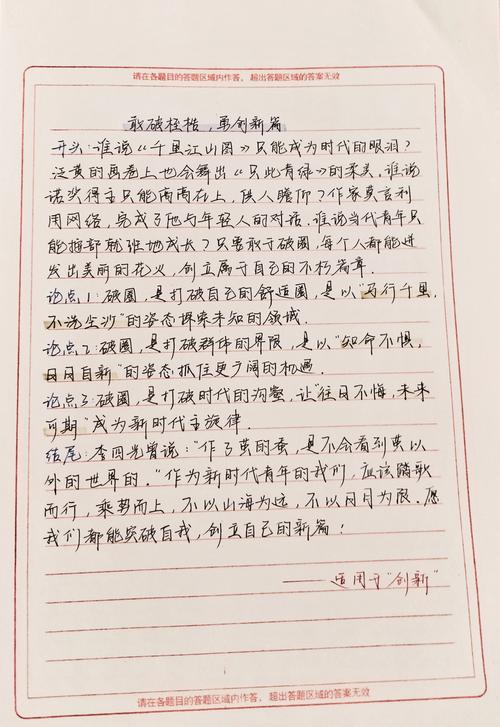 请在各题目的答题区域内作答，超出答题区域的答案无效
敢破桎梏，勇创新篇
开头：谁说《千里江山图》只能成为时代的眼泪？
泛黄的画卷上也会舞出《只此青绿》的柔美，谁说
诺奖得主只能高高在上，供人瞻仰？作家莫言利
用网络，完成了他与年轻人的对话。谁说当代青年只
能按部就班地成长？只要敢于破圈，每个人都能迸
发出美丽的花火，创立属于自己的不朽篇章.
论点1：破圈，是打破自己的舒适圈，是以"万行千里，
不洗尘沙"的姿态探索未知的领域.
论点2：破圈，是打破群体的界限，是以"知命不惧，
日日自新"的姿态抓住更广阔的机遇.
论点3：破圈，是打破时代的沟壑，让"往日不悔，未来
可期"成为新时代主旋律.
结尾：李四光曾说："作了茧的蚕，是不会看到茧以
外的世界的."作为新时代青年的我们，应该踏歌
而行，乘势而上，不以山海为远，不以日月为限.愿
我们都能突破自我，创立自己的新篇！
——适用于"创新"
请在各题目的答题区域内作答，超出答题区域的答案无效